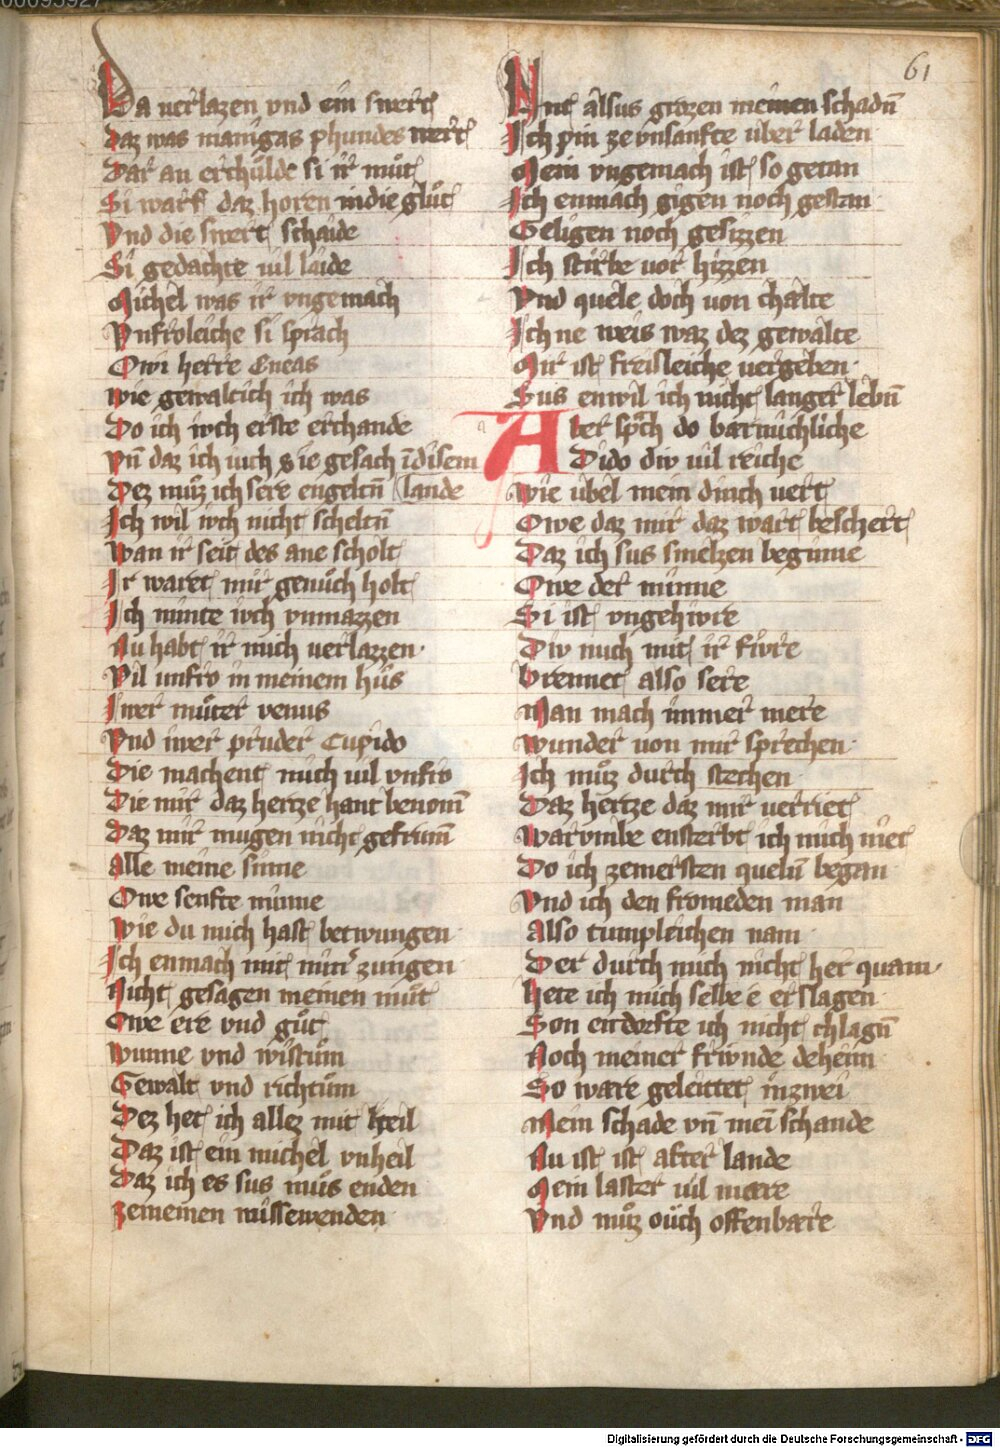 61
Da verlazen vnd ein swert
daz was manigas phundes wert
Dar an erchůlde si ir můt
Si warf daz horen in die glůt
Vnd die swert schaide
Si gedachte vil laide
Michel was ir vngemach
Vnfroleiche si sprach
Owi herre Eneas
wie gewaltich ich was
Do ich iwch erste erchande
Vn̄ daz ich iuch gesach ī disem
Dez můz ich sere engeltn̄ lande
Ich wil iwch nicht scheltn̄
Wan ir seit des ane scholt
Ir waret mir genůch holt
Ich minte iwch vnmazzen
Nu habt ir mich verlazzen
Vil vnfro in meinem hůs
Iwer můter venus
Vnd iwer pruder Cupido
Die machent mich vil vnfro
Die mir daz hertze hant benom̄
Daz mir mugen nicht gefrum̄
Alle meine sinne
Owe senfte minne
Wie du mich hast betwungen
Ich enmach mit minr̄ zungen
Nicht gesagen meinen můt
Owe ere vnd gůt
Wunne vnd wistům
Gewalt vnd richtům
Dez het ich allez mit heil
Daz ist ein michel vnheil
Daz ich es sus můs enden
Zemeinen missewenden
Mit alsus grozen meinen schadn̄
Ich pin ze vnsanfte vber laden
Mein vngemach ist so getan
Ich enmach gigen noch gestan
Geligen noch gesizzen
Ich stirbe vor hizzen
Vnd quele doch von chalte
Ich ne weis waz dez gewalte
Mir ist freisleiche vergeben
Sus enwil ich nicht langer lebn̄
Aber sprach do barmichliche
Dido div vil reiche
Wie vbel mein dinch vert
Owe daz mir daz wart beschert
Daz ich sus smelzen beginne
Owe der minne
Si ist vngehivre
Div mich mit ir fivre
Brennet also sere
Man mach immer mere
Wunder von mir sprechen
Ich můz durch stechen
Daz hertze daz mir verriet
Warvmbe ensterbt ich mich niet
Do ich zemersten queln̄ began
Vnd ich den fromeden man
Also tumpleichen nam
Der durch mich nicht her quam
Hete ich mich selbe e erslagen
Son endorfte ich nicht chlagn̄
Noch meiner friwnde deheim
So ware geleittet in zwei
Mein schade vn̄ mei schande
Nu ist ist after lande
Mein laster vil mære
Vnd můz oůch offenbære
Digitalisierung gefördert durch die Deutsche Forschungsgemeinschaft - DFG